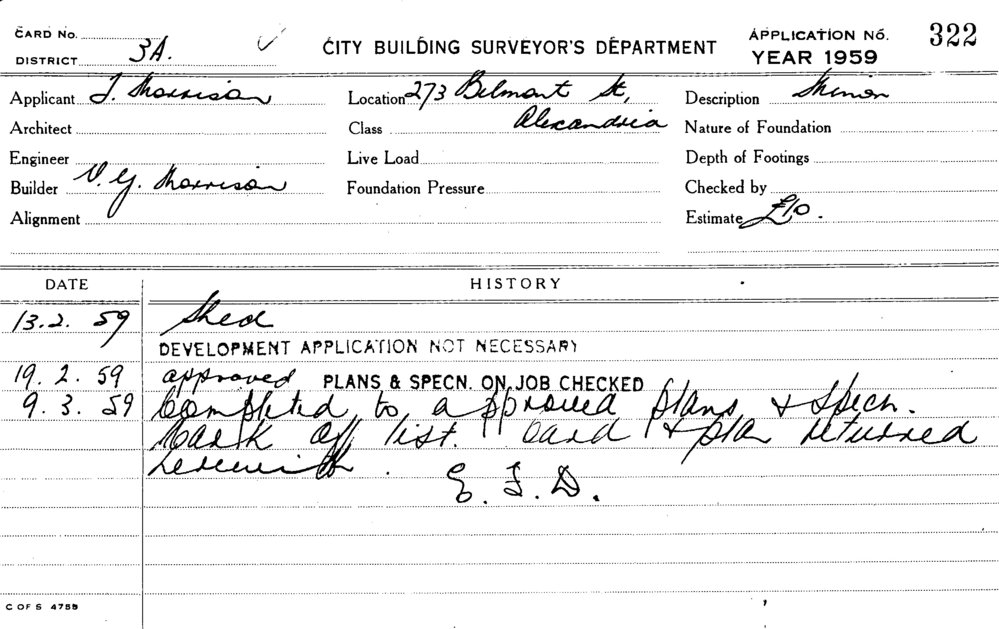 CARD No.
DISTRICT 3A.
CITY BUILDING SURVEYOR'S DEPARTMENT
APPLICATION No. 322
YEAR 1959
Applicant J. Morrison Location 273 Belmont St, Description Minor
Architect Class Alexandria Nature of Foundation
Engineer Live Load Depth of Footings
Builder V. G. Morrison Foundation Pressure Checked by
Alignment Estimate £10.
DATE HISTORY
13.2.59 Shed
DEVELOPMENT APPLICATION NOT NECESSARY
19.2.59 approved PLANS & SPECN. ON JOB CHECKED
9.3.59 Completed to approved plans & specn.
Mark off list. Card & plan returned
herewith.
E. F. D.
C OF S 4755